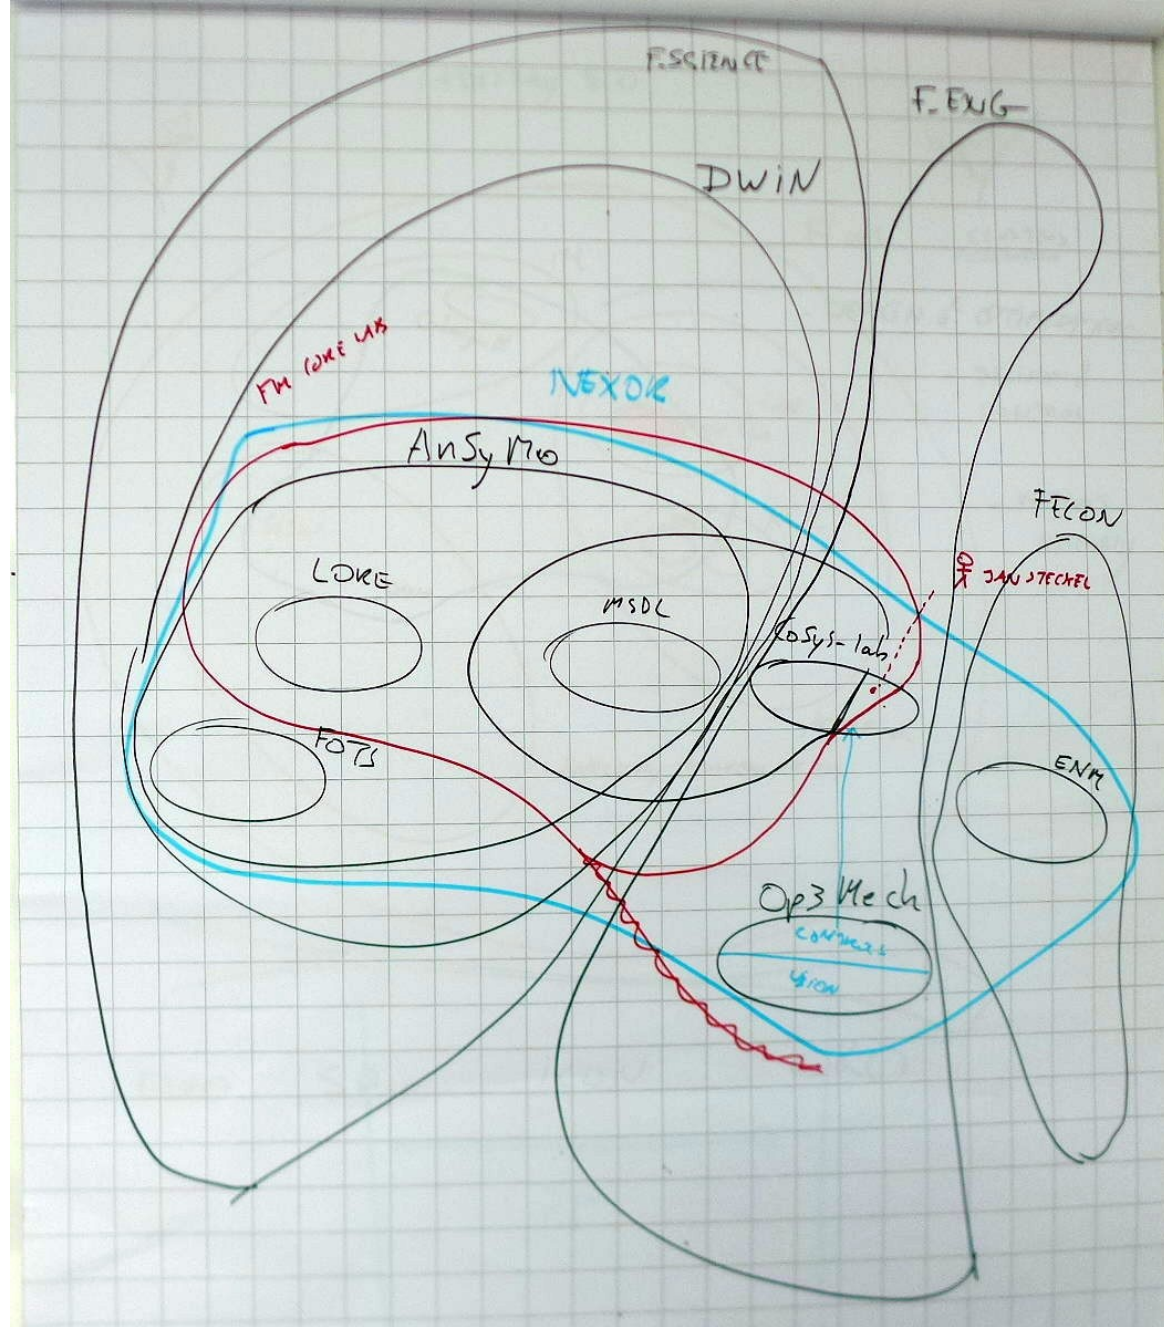 F.SCIENCE
F.ENG
DWiN
FM CORE LAB
NEXOR
AnSyMo
FECON
LORE
JAN STECKEL
MSDL
CoSys-lab
FOTS
ENM
Op3Mech
CONTROLS
VISION